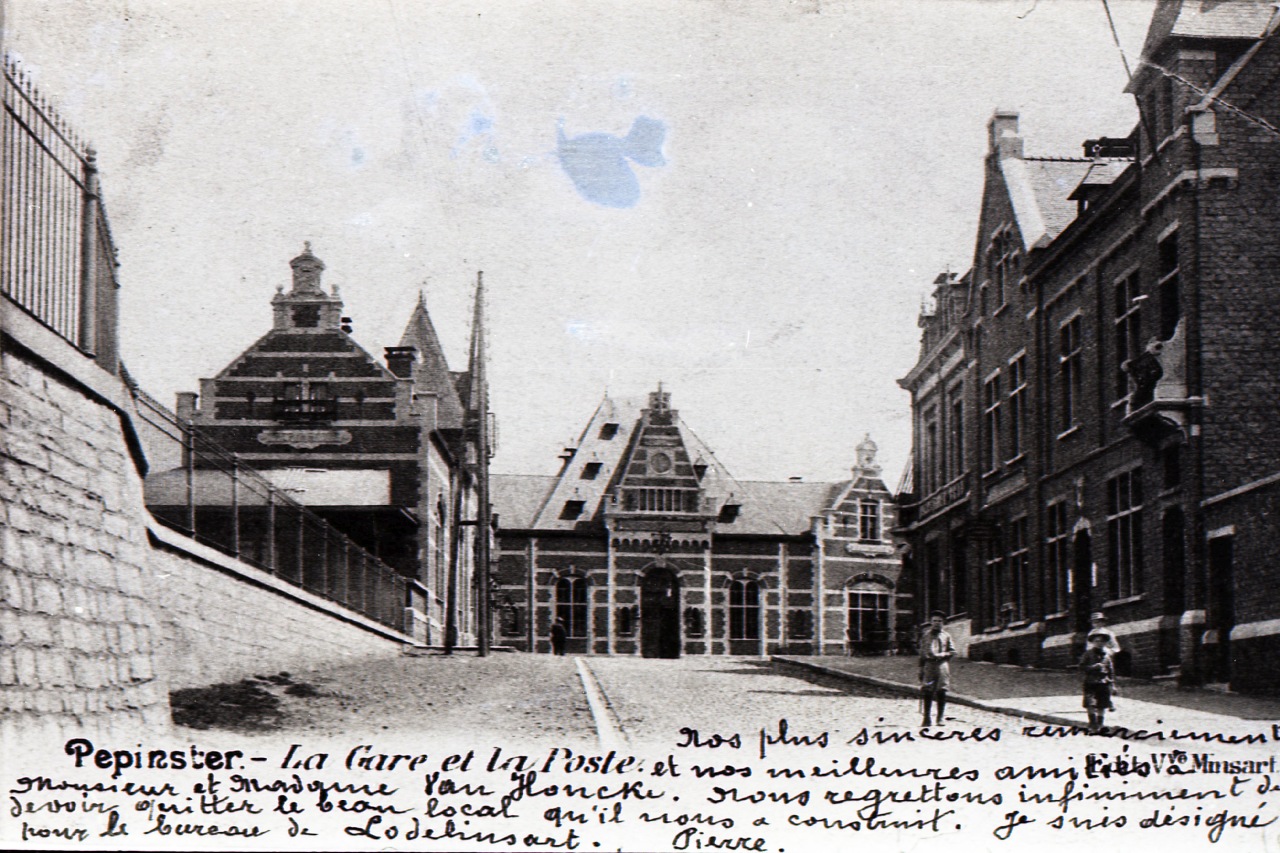 Nos plus sincères remerciement
Pepinster. - La Gare et la Poste. et nos meilleures amitiés à
Edit. Vve Minsart.
Monsieur et Madame Van Honcke. Nous regrettons infiniment de
devoir quitter le beau local qu'il nous a construit. Je suis désigné
pour le bureau de Lodelinsart. Pierre.